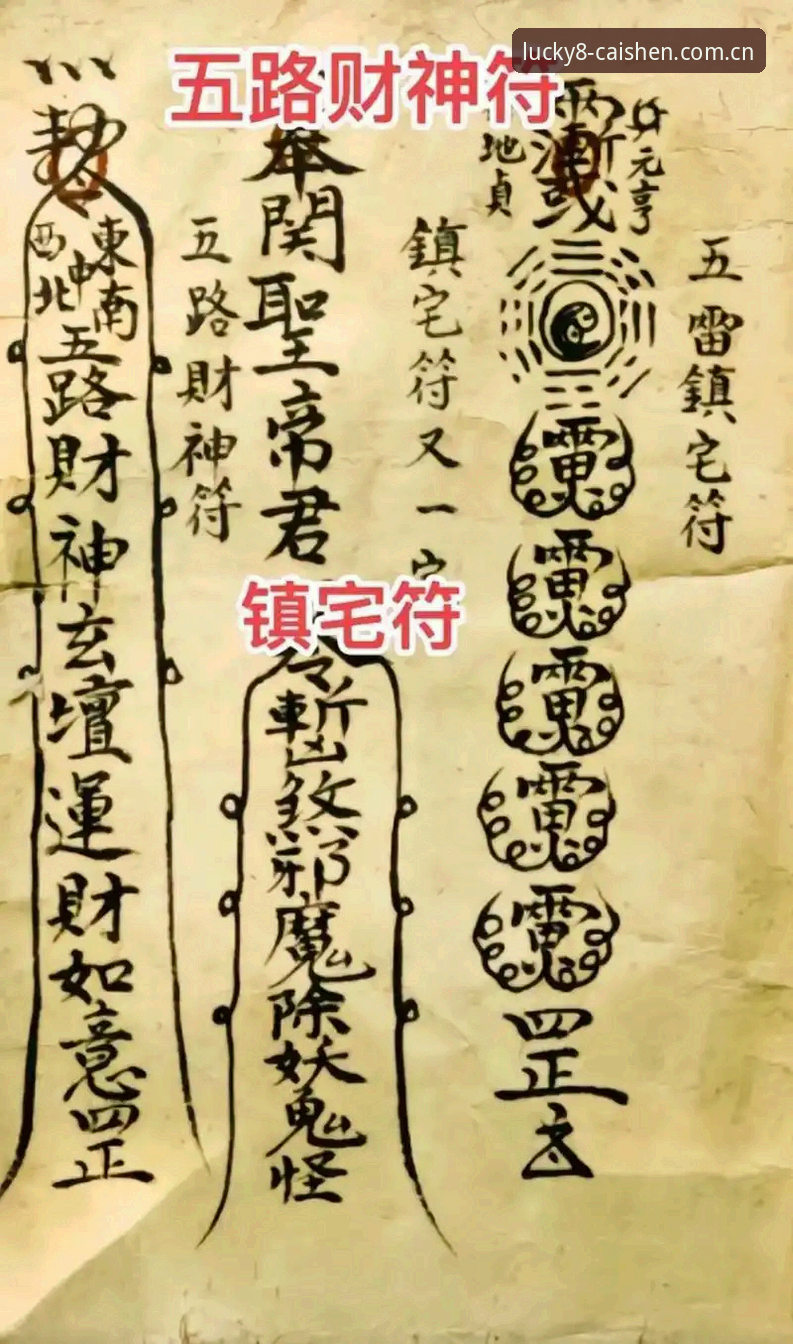 lucky8-caishen.com.cn
五路财神符
镇宅符
五雷鎮宅符
元亨
地貞
四正
鎮宅符又一
奉関聖帝君
斬凶煞邪魔除妖鬼怪
五路財神符
東南中西北
五路財神玄壇運財如意四正